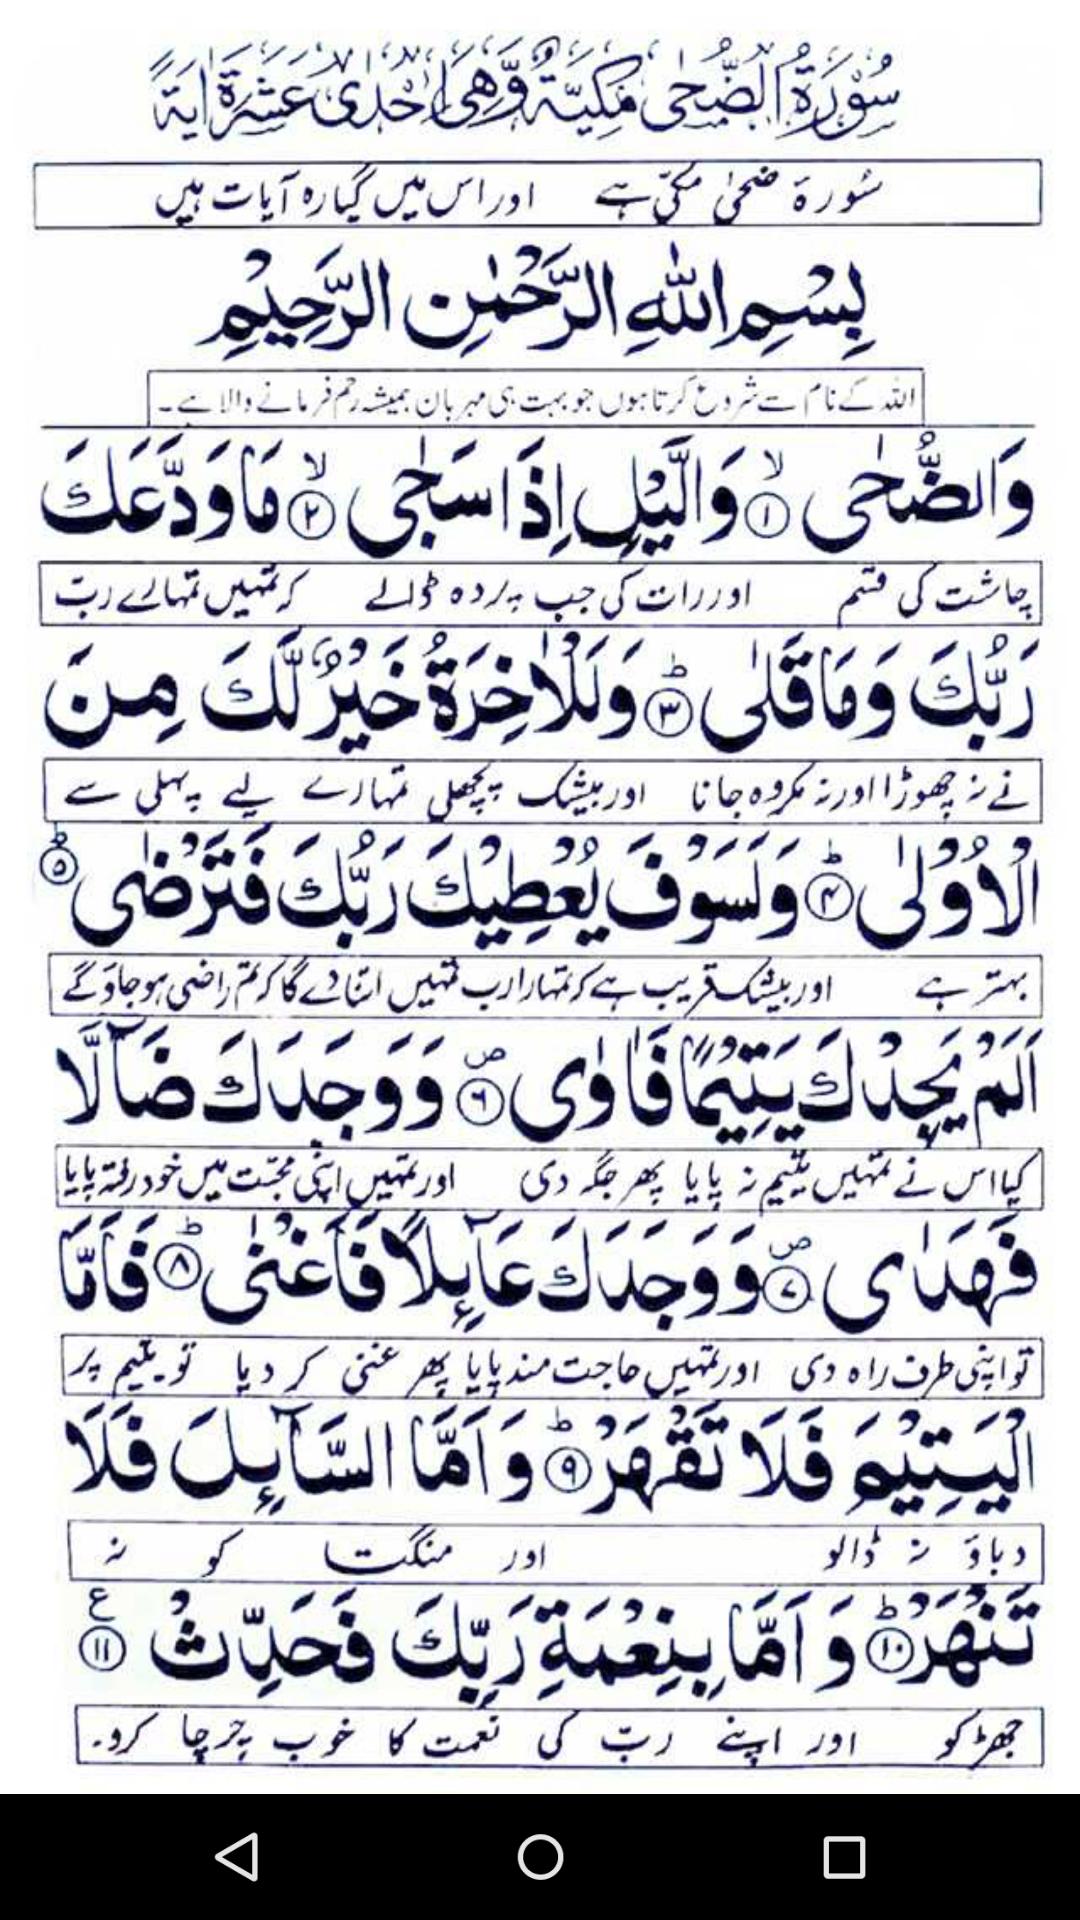 سُوْرَةُ الضُّحٰى مَكِّيَّةٌ وَّهِىَ اِحْدٰى عَشْرَةَ اٰيَةً
سُورۃ ضحیٰ مکّی ہے اور اس میں گیارہ آیات ہیں
بِسْمِ اللّٰهِ الرَّحْمٰنِ الرَّحِيْمِ
اللہ کے نام سے شروع کرتا ہوں جو بہت ہی مہربان ہمیشہ رحم فرمانے والا ہے۔
وَالضُّحٰى ۙ﴿۱﴾ وَالَّيْلِ اِذَا سَجٰى ۙ﴿۲﴾ مَا وَدَّعَكَ
چاشت کی قسم اور رات کی جب پردہ ڈالے کہ تمہیں تمہارے ربّ
رَبُّكَ وَمَا قَلٰى ؕ﴿۳﴾ وَلَلْاٰخِرَةُ خَيْرٌ لَّكَ مِنَ
نے نہ چھوڑا اور نہ مکروہ جانا اور بیشک پچھلی تمہارے لیے پہلی سے
الْاُوْلٰى ؕ﴿۴﴾ وَلَسَوْفَ يُعْطِيْكَ رَبُّكَ فَتَرْضٰى ؕ﴿۵﴾
بہتر ہے اور بیشک قریب ہے کہ تمہارا رب تمہیں اتنا دے گا کہ تم راضی ہو جاؤ گے
اَلَمْ يَجِدْكَ يَتِيْمًا فَاٰوٰى ۪﴿۶﴾ وَوَجَدَكَ ضَآلًّا
کیا اس نے تمہیں یتیم نہ پایا پھر جگہ دی اور تمہیں اپنی محبّت میں خود رفتہ پایا
فَهَدٰى ۪﴿۷﴾ وَوَجَدَكَ عَآئِلًا فَاَغْنٰى ؕ﴿۸﴾ فَاَمَّا
تو اپنی طرف راہ دی اور تمہیں حاجت مند پایا پھر غنی کر دیا تو یتیم پر
الْيَتِيْمَ فَلَا تَقْهَرْ ؕ﴿۹﴾ وَاَمَّا السَّآئِلَ فَلَا
دباؤ نہ ڈالو اور منگتا کو نہ
تَنْهَرْ ؕ﴿۱۰﴾ وَاَمَّا بِنِعْمَةِ رَبِّكَ فَحَدِّثْ ﴿۱۱﴾ ع
جھڑکو اور اپنے ربّ کی نعمت کا خوب چرچا کرو۔